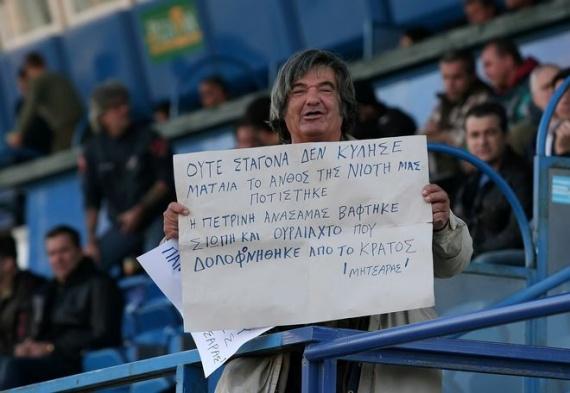 ΟΥΤΕ ΣΤΑΓΟΝΑ ΔΕΝ ΚΥΛΗΣΕ
ΜΑΤΑΙΑ ΤΟ ΑΝΘΟΣ ΤΗΣ ΝΙΟΤΗ ΜΑΣ
ΠΟΤΙΣΤΗΚΕ
Η ΠΕΤΡΙΝΗ ΑΝΑΣΑΜΑΣ ΒΑΦΤΗΚΕ
ΣΙΩΠΗ ΚΑΙ ΟΥΡΛΙΑΧΤΟ ΠΟΥ
ΔΟΛΟΦΝΗΘΗΚΕ ΑΠΟ ΤΟ ΚΡΑΤΟΣ
!ΜΗΤΣΑΡΑΣ!